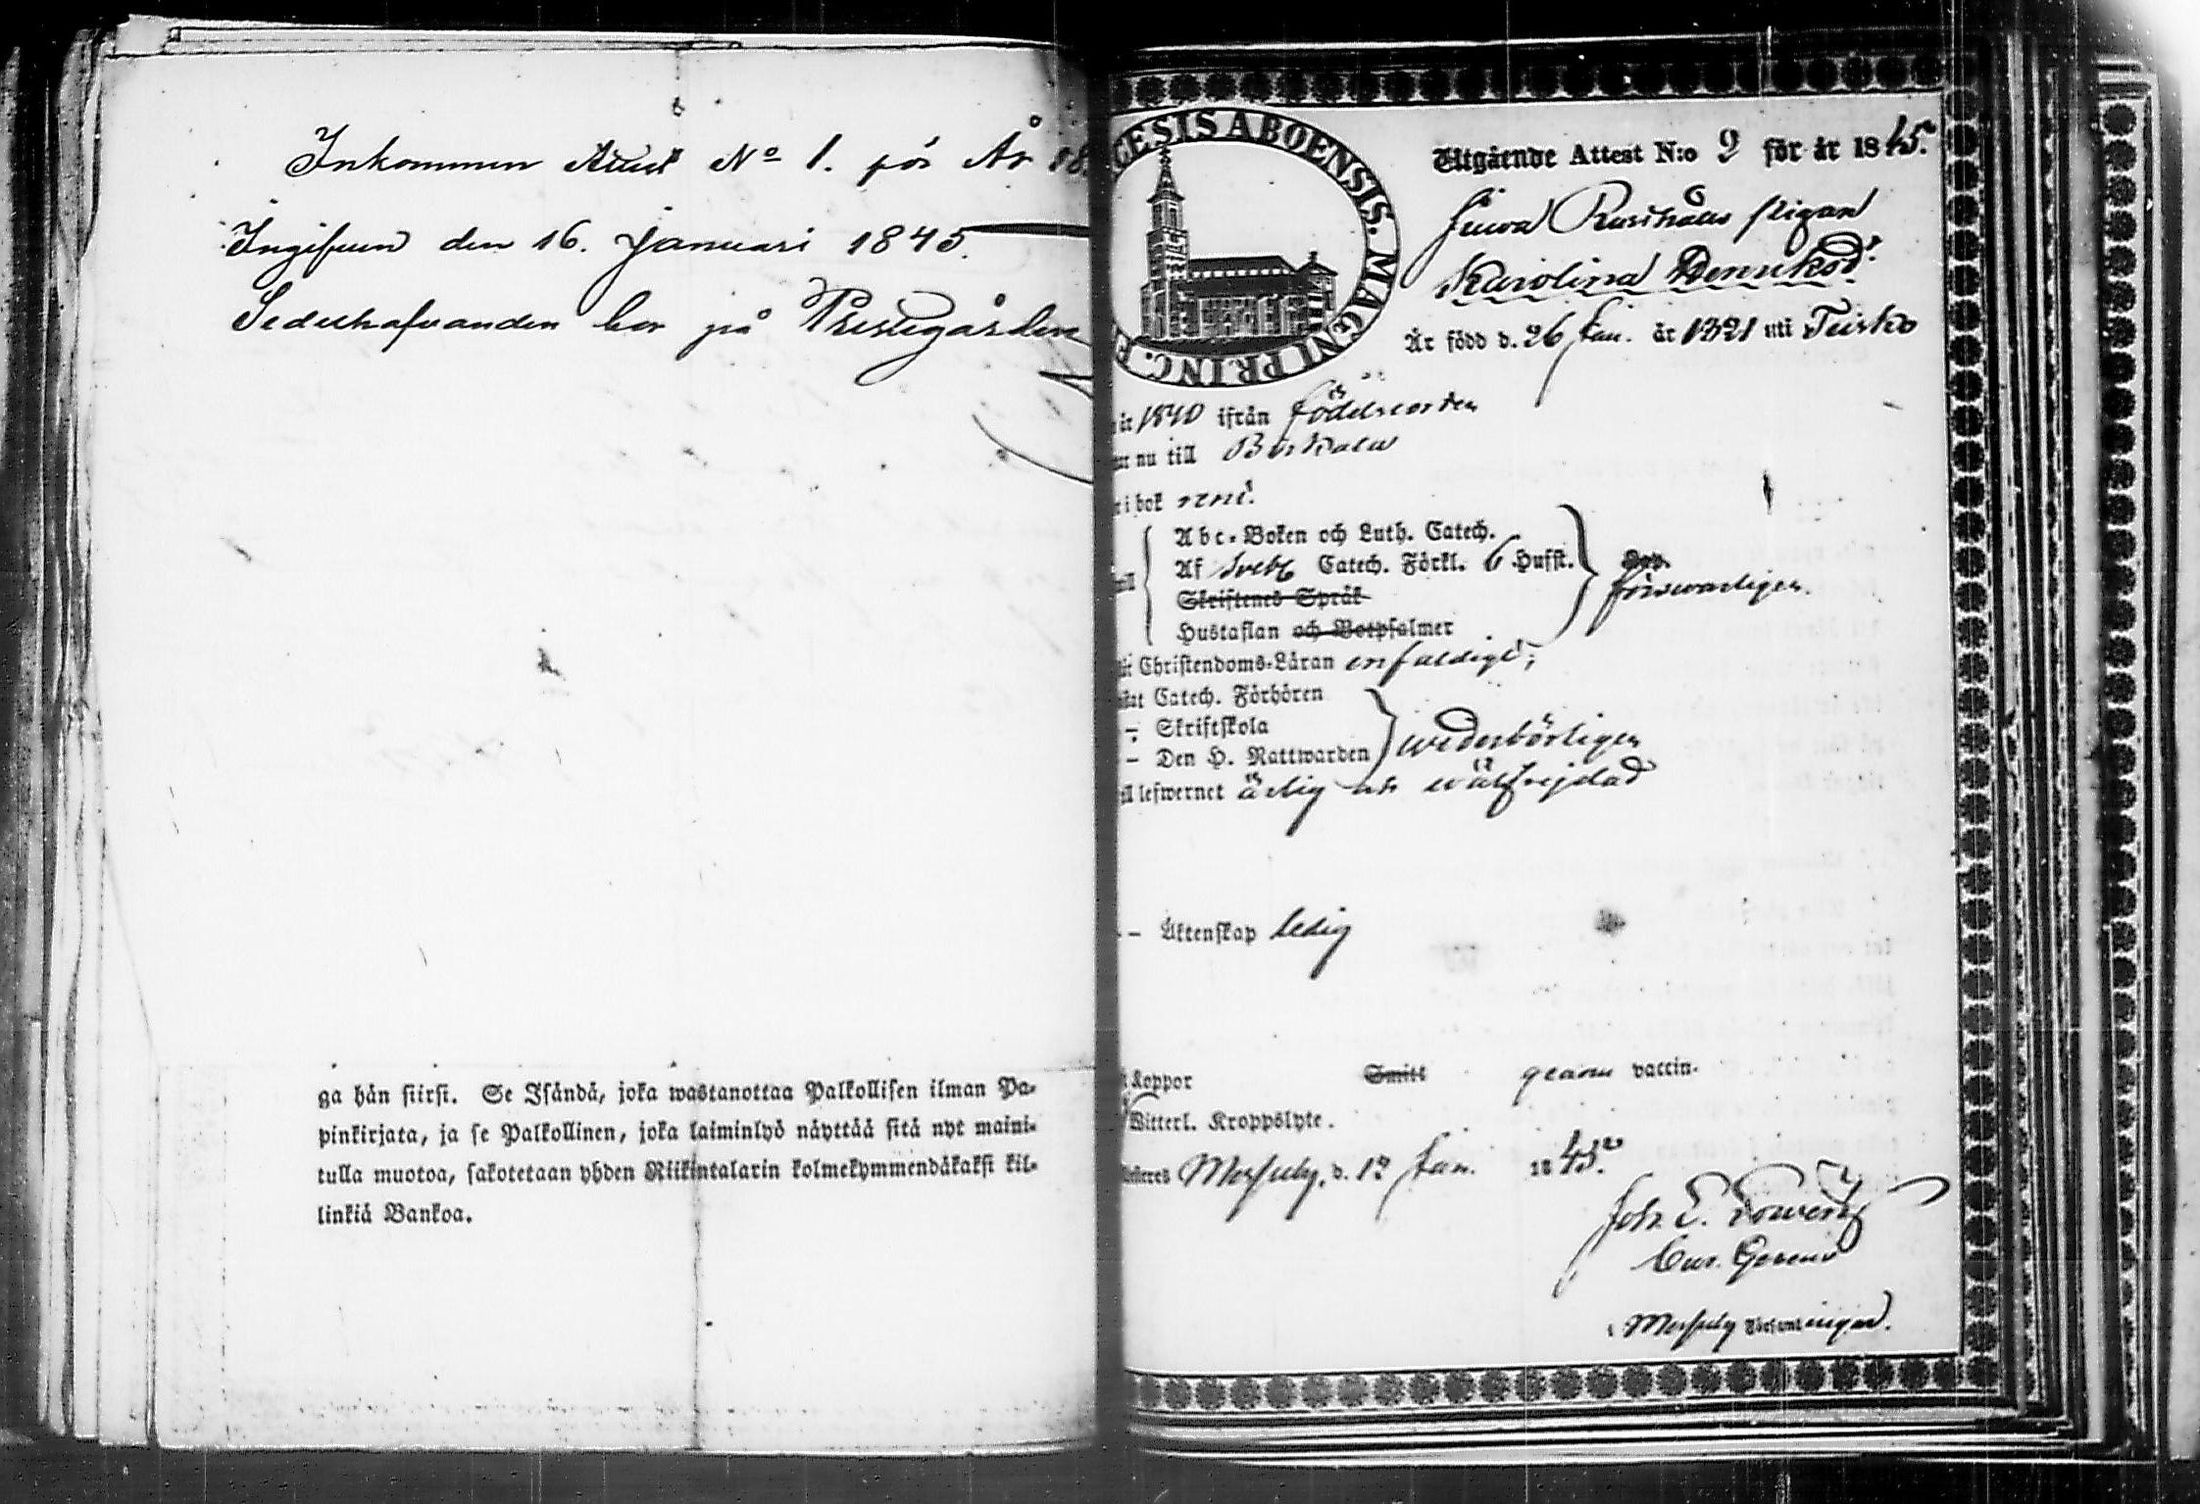 Inkommen Attest No 1. för År 18
Ingifven den 16. Januari 1845.
Innehafvanden bor på Prestegården
ga hån siirsi. Se Isåndå, joka wastanottaa Palkollisen ilman Pa-
pinkirjata, ja se Palkollinen, joka laiminlyö nåyttåå sitå nyt maini-
tulla muotoa, sakotetaan yhden Riikintalarin kolmekymmendåkaksi kil-
linkiå Bankoa.
CESIS ABOENSIS. MAGNI PRINC. F
Utgående Attest N:o 2 för år 1845.
Pigan
Karolina Henriksdr
Är född d. 26 Jan. år 1821 uti Teisko
år 1840 ifrån födelseorten
nu till Birkala
i bok rent.
Abc-Boken och Luth. Catech.
Af Sveb Catech. Förkl. 6 Hufst.
Skriftenes Språk
Hustaflan och Botpsalmer
försvarligen.
Christendoms-Läran enfaldigt;
Catech. Förhören
– Skriftskola
– Den H. Nattwarden
wederbörligen
ill lefwernet ärlig och wälfrejdad
– Äktenskap ledig
Koppor Smitt genom vaccin.
Witterl. Kroppslyte.
Messuby, d. 12 Jan. 1845.
Joh. E.
Cur. Gerens
i Messuby Församlingar.